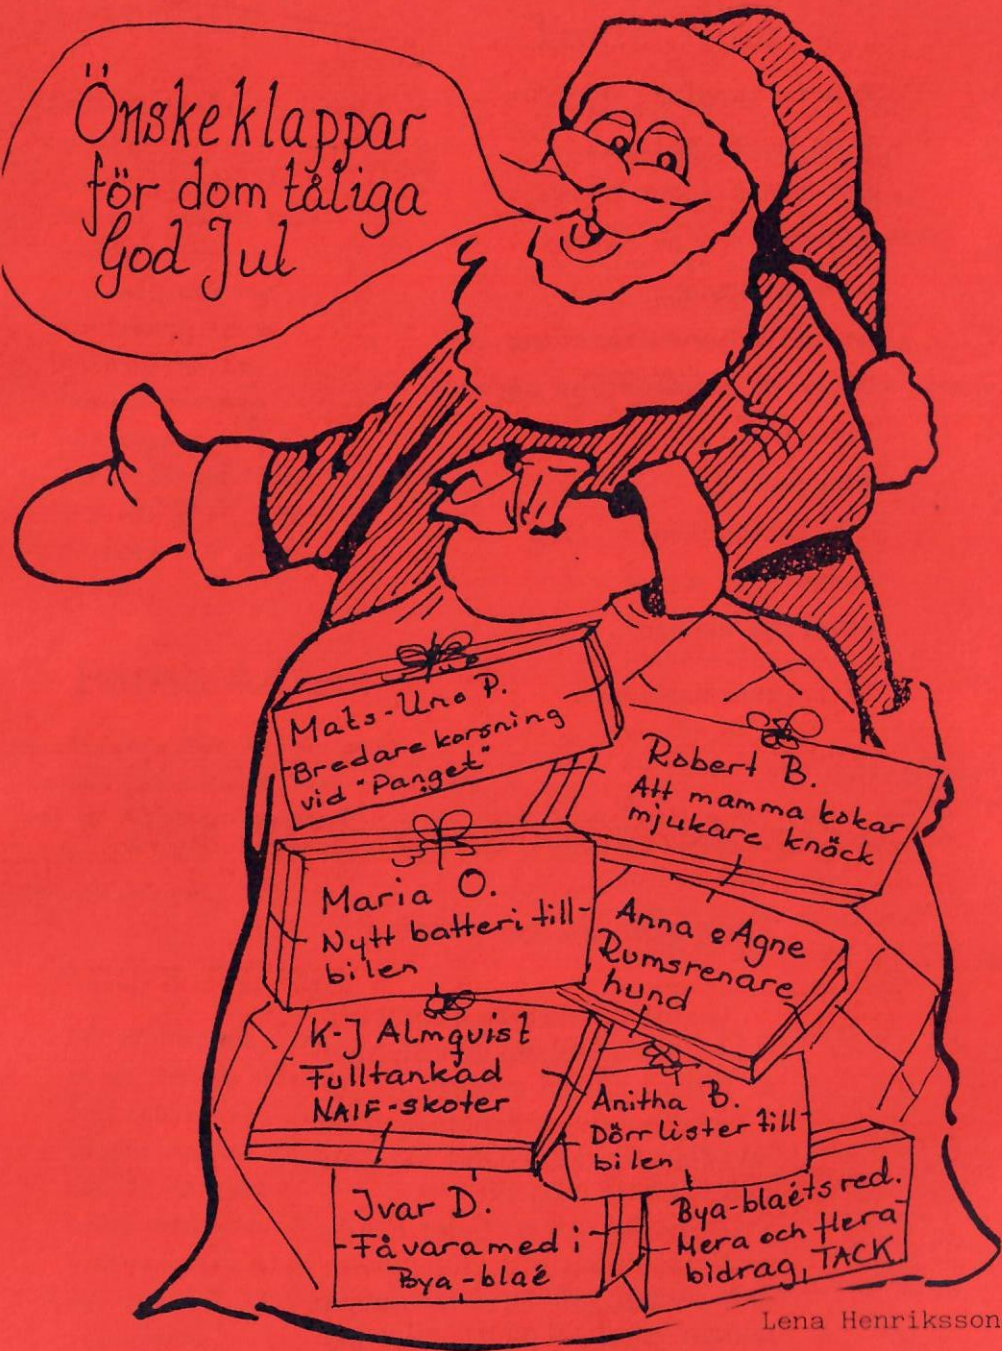 Önskeklappar
för dom tåliga
God Jul
Mats-Uno P.
Bredare korsning
vid "Panget"
Robert B.
Att mamma kokar
mjukare knäck
Maria Ö.
Nytt batteri till
bilen
Anna & Agne
Rumsrenare
hund
K-J Almqvist
Fulltankad
NAIF-skoter
Anitha B.
Dörrlister till
bilen
Ivar D.
Få vara med i
Bya-blaé
Bya-blaéts red.
Mera och flera
bidrag, TACK
Lena Henriksson